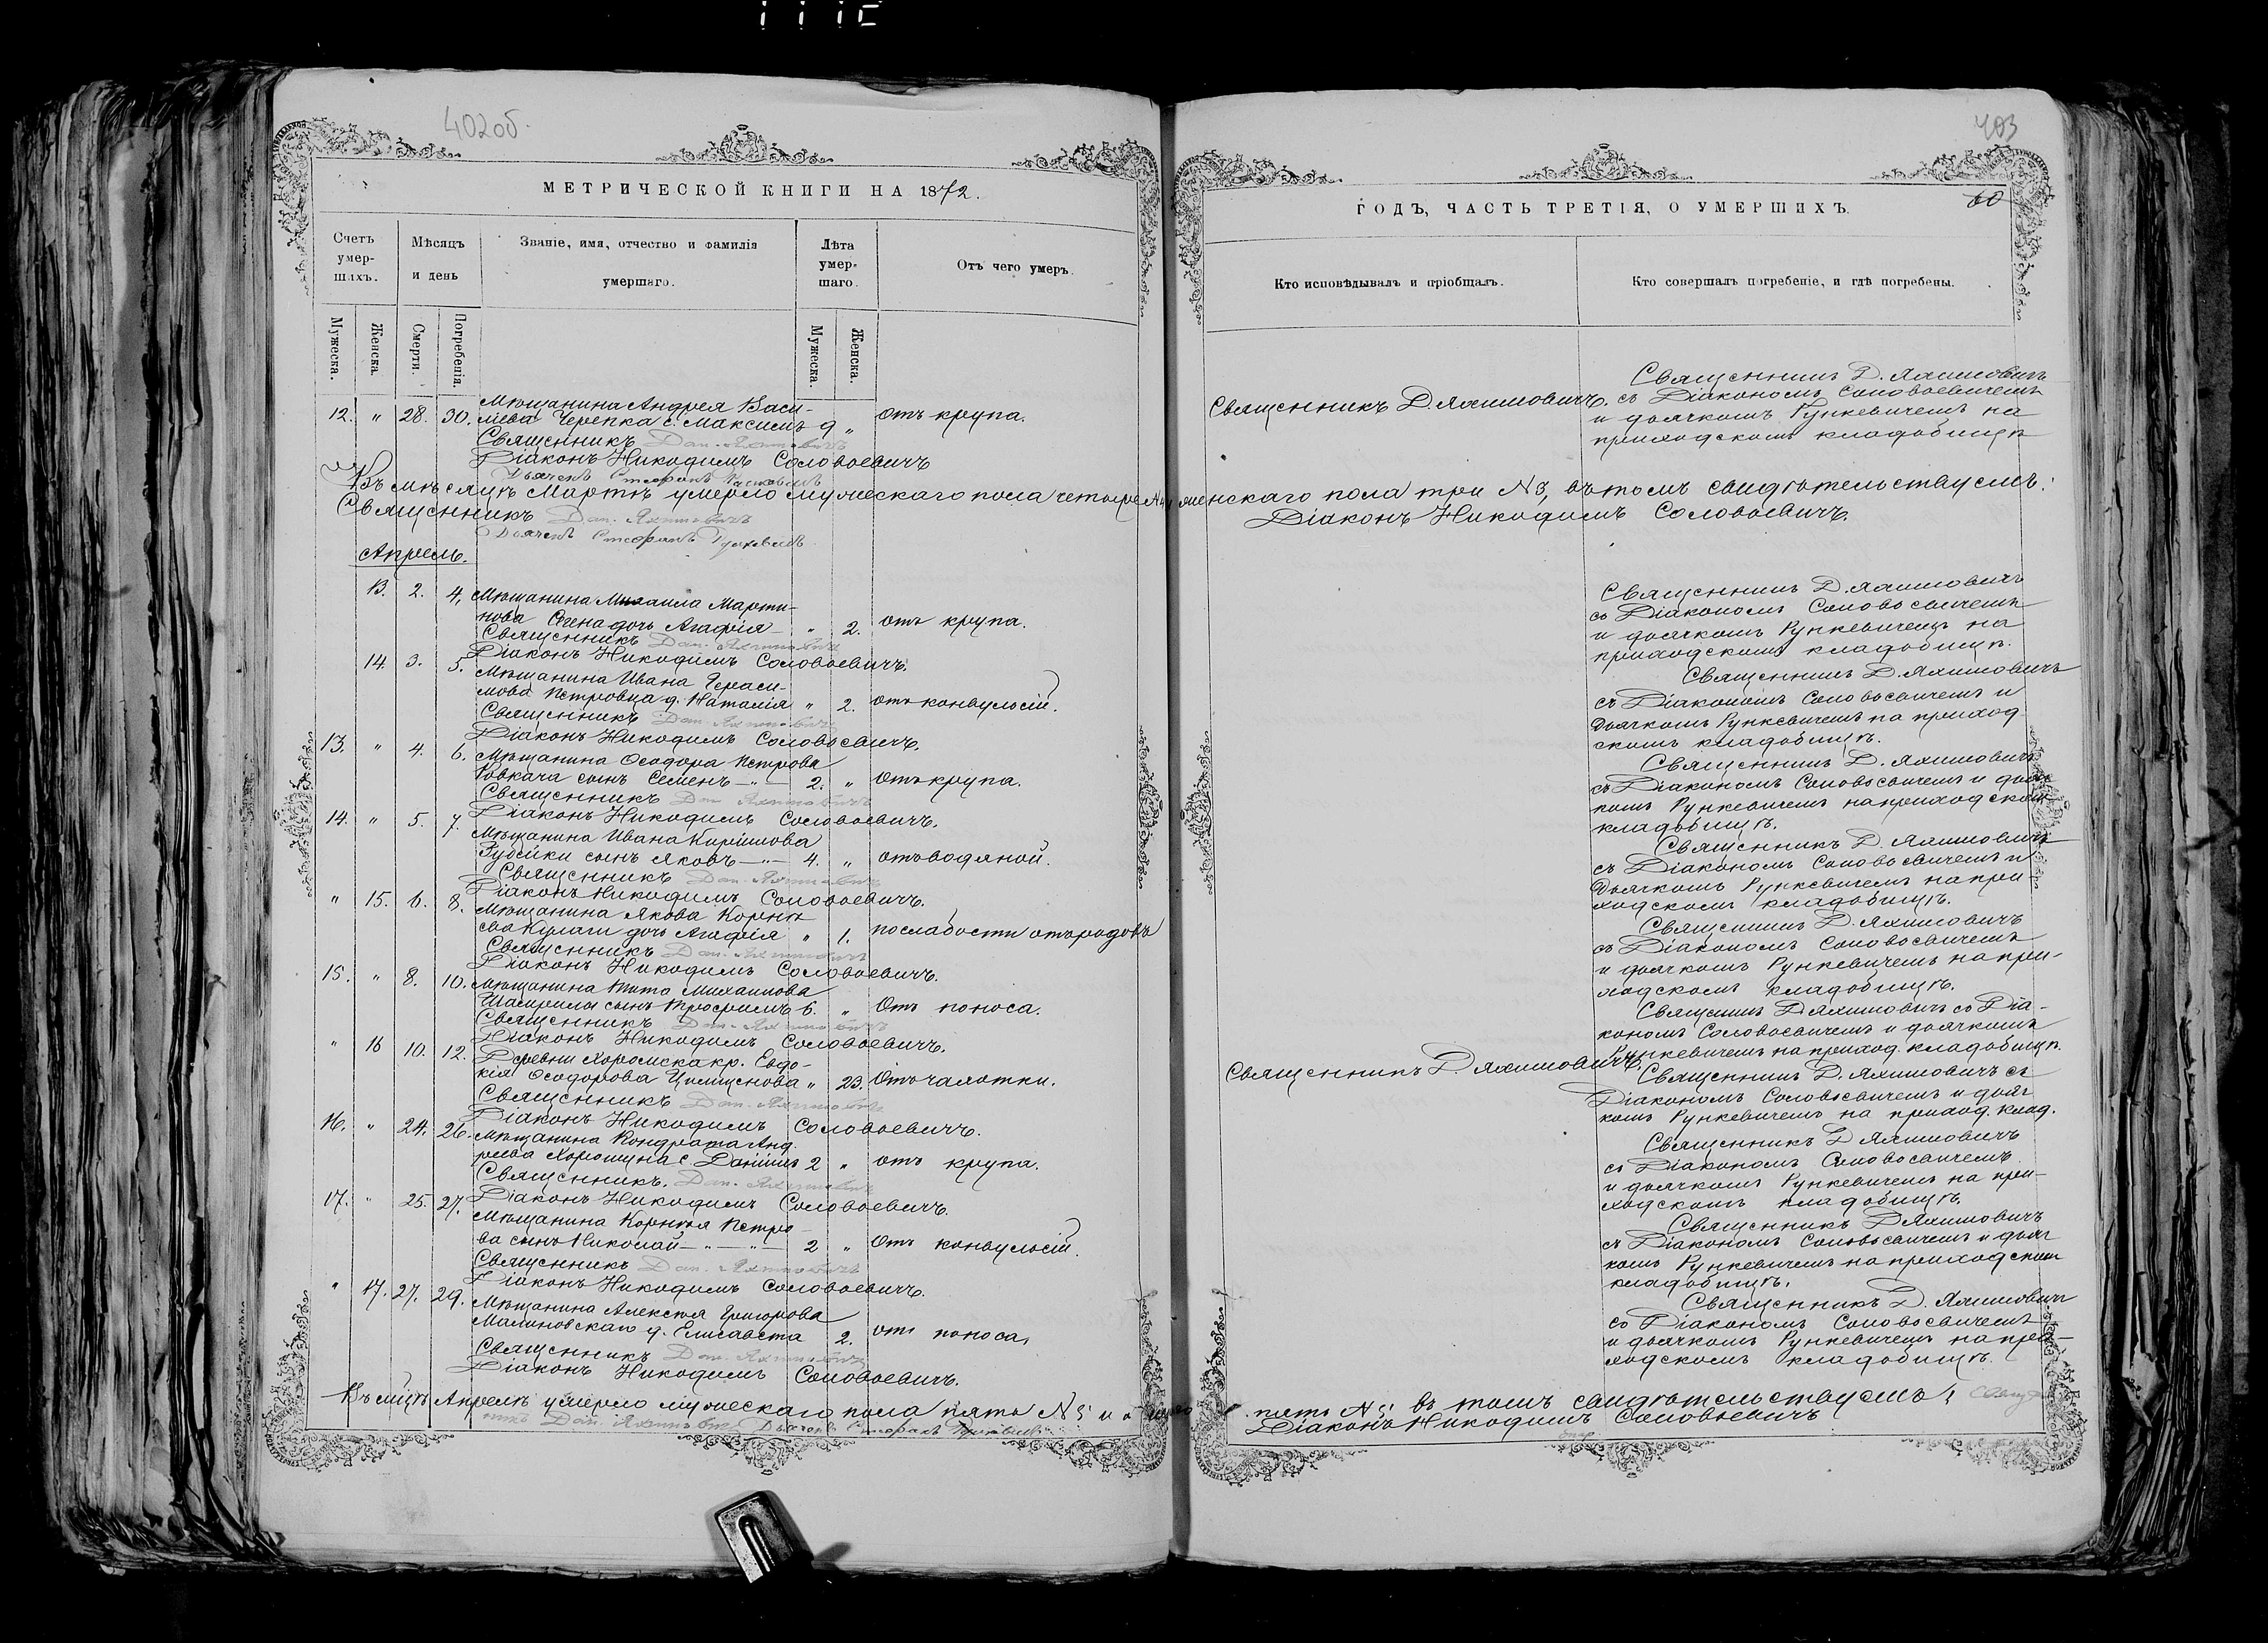 402об.
МЕТРИЧЕСКОЙ КНИГИ НА 1872.
Счетъ умер-шихъ.
Мѣсяцъ и день
Званіе, имя, отчество и фамилія умершаго.
Лѣта умер-шаго.
Отъ чего умеръ.
Мужеска.
Женска.
Смерти.
Погребенія.
Мужеска.
Женска.
Мѣщанина Андрея Васи-
12. " 28. 30. лiева Черепка с. Максимъ 9 " отъ крупа.
Священникъ Дан. Яхимовичъ
Діаконъ Никодимъ Соловьевичъ
Дьячекъ
Въ мѣсяцѣ Мартѣ умерло мужескаго пола четыре
Священникъ Дан. Яхимовичъ
Дьячекъ
Апрель.
13. 2. 4. Мѣщанина Михаила Марти-
нова дочь Агафія " 2. отъ крупа.
Священникъ Дан. Яхимовичъ
Діаконъ Никодимъ Соловьевичъ.
14. 3. 5. Мѣщанина Ивана Гераси-
мова Петровца д. Наталія " 2. отъ конвульсій.
Священникъ Дан. Яхимовичъ
Діаконъ Никодимъ Соловьевичъ.
13. " 4. 6. Мѣщанина Ѳеодора Петрова
Ковкача сынъ Семенъ 2. " отъ крупа.
Священникъ Дан. Яхимовичъ
Діаконъ Никодимъ Соловьевичъ.
14. " 5. 7. Мѣщанина Ивана
сынъ Яковъ 4. " отъ водяной.
Священникъ Дан. Яхимовичъ
Діаконъ Никодимъ Соловьевичъ.
" 15. 6. 8. Мѣщанина Якова Корнѣ-
ева Кулаги дочь Агафія " 1. по слабости отъ родовъ
Священникъ Дан. Яхимовичъ
Діаконъ Никодимъ Соловьевичъ.
15. " 8. 10. Мѣщанина Тита Михаилова
сынъ Трофимъ 6. " Отъ поноса.
Священникъ Дан. Яхимовичъ
Діаконъ Никодимъ Соловьевичъ.
" 16 10. 12. Деревни Хоромска кр. Евдо-
кія Ѳеодорова " 23. Отъ чахотки.
Священникъ Дан. Яхимовичъ
Діаконъ Никодимъ Соловьевичъ.
16. " 24. 26. Мѣщанина Кондрата Анд-
реева Хорошуна с. Даніилъ 2 " отъ крупа.
Священникъ. Дан. Яхимовичъ
Діаконъ Никодимъ Соловьевичъ.
17. " 25. 27. Мѣщанина Корнѣя Петро-
ва сынъ Николай 2 " Отъ конвульсій.
Священникъ Дан. Яхимовичъ
Діаконъ Никодимъ Соловьевичъ.
" 17. 27. 29. Мѣщанина Алексѣя Григорова
Малиновскаго д. Елисавета 2. отъ поноса,
Священникъ Дан. Яхимовичъ
Діаконъ Никодимъ Соловьевичъ.
Въ мцѣ Апрелѣ умерло мужескаго пола пять №5 и
Дан. Яхимовичъ Дьячекъ
403
60
ГОДЪ, ЧАСТЬ ТРЕТІЯ, О УМЕРШИХЪ.
Кто исповѣдывалъ и пріобщалъ.
Кто совершалъ погребеніе, и гдѣ погребены.
Священникъ Д. Яхимовичъ.
Священникъ Д. Яхимовичъ
съ Діакономъ Соловьевичемъ
и дьячкомъ Рункевичемъ на
приходскомъ кладбищѣ
женскаго пола три №3, въ томъ свидѣтельствуемъ:
Діаконъ Никодимъ Соловьевичъ.
Священникъ Д. Яхимовичъ
съ Діакономъ Соловьевичемъ
и дьячкомъ Рункевичемъ на
приходскомъ кладбищѣ.
Священникъ Д. Яхимовичъ
съ Діакономъ Соловьевичемъ и
дьячкомъ Рункевичемъ на приход-
скомъ кладбищѣ.
Священникъ Д. Яхимовичъ
съ Діакономъ Соловьевичемъ и дьяч-
комъ Рункевичемъ на приходскомъ
кладбищѣ.
Священникъ Д. Яхимовичъ
съ Діакономъ Соловьевичемъ и
дьячкомъ Рункевичемъ на при-
ходскомъ кладбищѣ.
Священникъ Д. Яхимовичъ
съ Діакономъ Соловьевичемъ
и дьячкомъ Рункевичемъ на при-
ходскомъ кладбищѣ.
Священникъ Д. Яхимовичъ съ Діа-
кономъ Соловьевичемъ и дьячкомъ
Рункевичемъ на приход. кладбищѣ.
Священникъ Д. Яхимовичъ.
Священникъ Д. Яхимовичъ съ
Діакономъ Соловьевичемъ и дьяч-
комъ Рункевичемъ на приход. клад.
Священникъ Д. Яхимовичъ
съ Діакономъ Соловьевичемъ
и дьячкомъ Рункевичемъ на при-
ходскомъ кладбищѣ.
Священникъ Д. Яхимовичъ
съ Діакономъ Соловьевичемъ и дьяч-
комъ Рункевичемъ на приходскомъ
кладбищѣ.
Священникъ Д. Яхимовичъ
со Діакономъ Соловьевичемъ
и дьячкомъ Рункевичемъ на при-
ходскомъ кладбищѣ.
пять №5; въ томъ свидѣтельствуемъ:
Діаконъ Никодимъ Соловьевичъ